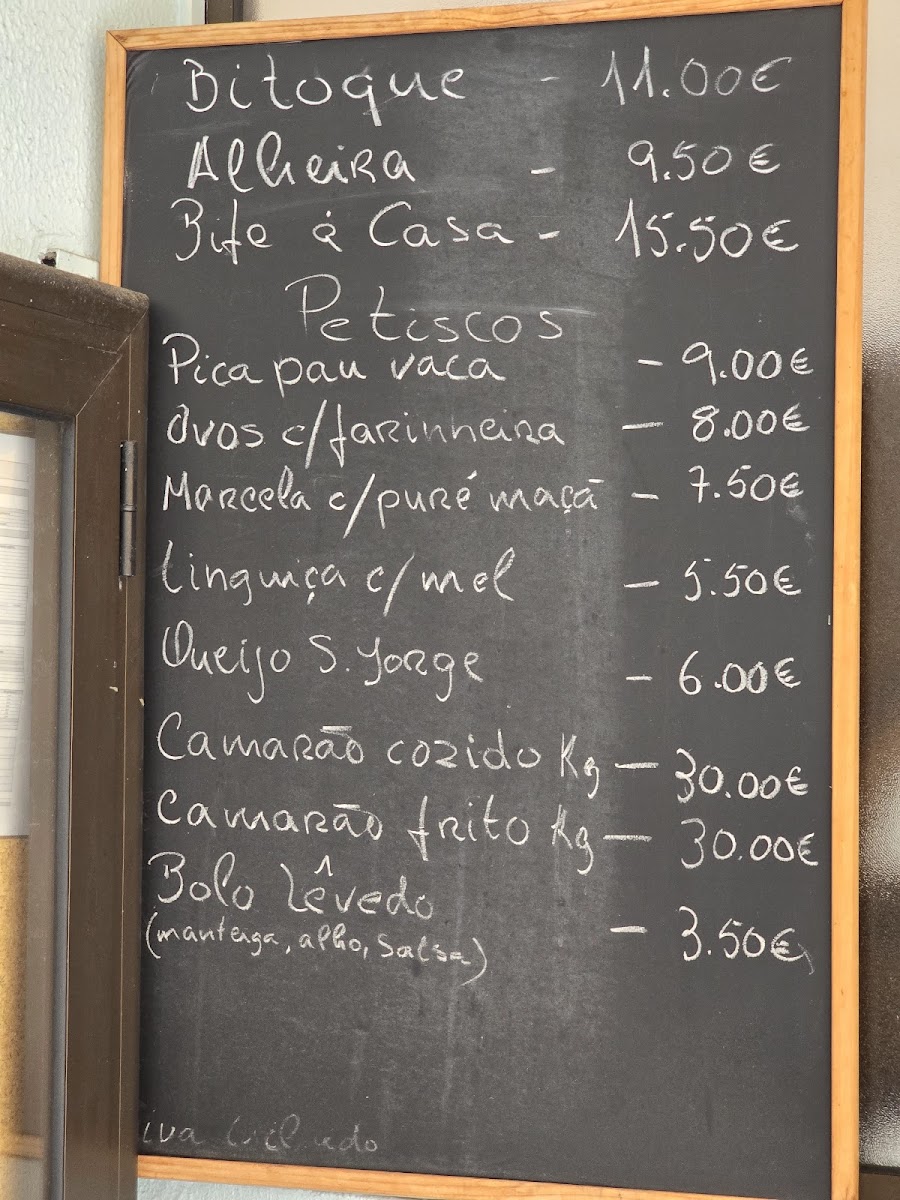 Bitoque - 11.00€
Alheira - 9.50€
Bife á Casa - 15.50€
Petiscos
Pica pau vaca - 9.00€
Ovos c/farinheira - 8.00€
Morcela c/puré maçã - 7.50€
Linguiça c/mel - 5.50€
Queijo S. Jorge - 6.00€
Camarão cozido Kg - 30.00€
Camarão frito Kg - 30.00€
Bolo Lêvedo
(manteiga, alho, salsa) - 3.50€
iva